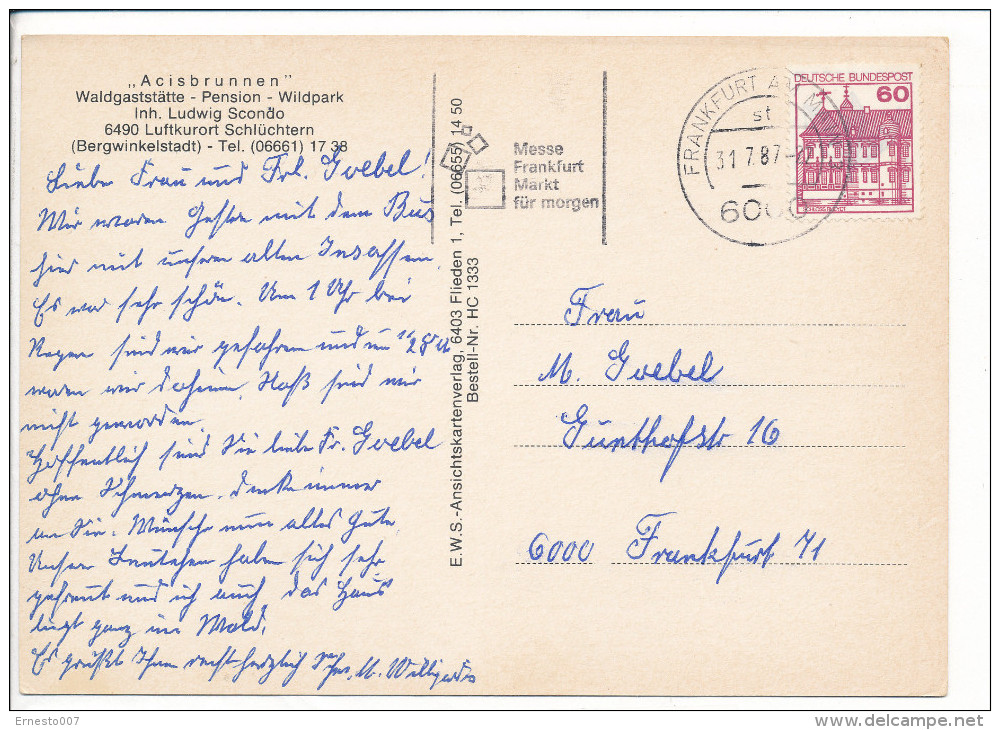 „Acisbrunnen”
Waldgaststätte - Pension - Wildpark
Inh. Ludwig Scondo
6490 Luftkurort Schlüchtern
(Bergwinkelstadt) - Tel. (06661) 17 38
Liebe Frau und Frl. Goebel!
Wir waren gestern mit dem Bus
hier mit unsren alten Insassen.
Es war sehr schön. Um 1 Uhr bei
Regen sind wir gefahren und um 1/2 8 U
waren wir daheim. Naß sind wir
nicht geworden.
Hoffentlich sind Sie liebe Fr. Goebel
ohne Schmerzen. Denke immer
an Sie. Wünsche nun alles Gute.
Unsere Leutchen haben sich sehr
gefreut und ich auch das Haus
liegt ganz im Wald.
Es grüßt Ihnen recht herzlich Ihre M.
E.W.S.-Ansichtskartenverlag, 6403 Flieden 1, Tel. (06655) 14 50
Bestell-Nr. HC 1333
Messe
Frankfurt
Markt
für morgen
FRANKFURT AM M
st
31.7.87
6000
DEUTSCHE BUNDESPOST
60
Frau
M. Goebel
Gunthofstr 16
6000 Frankfurt 71
Ernesto007
delcampe.net